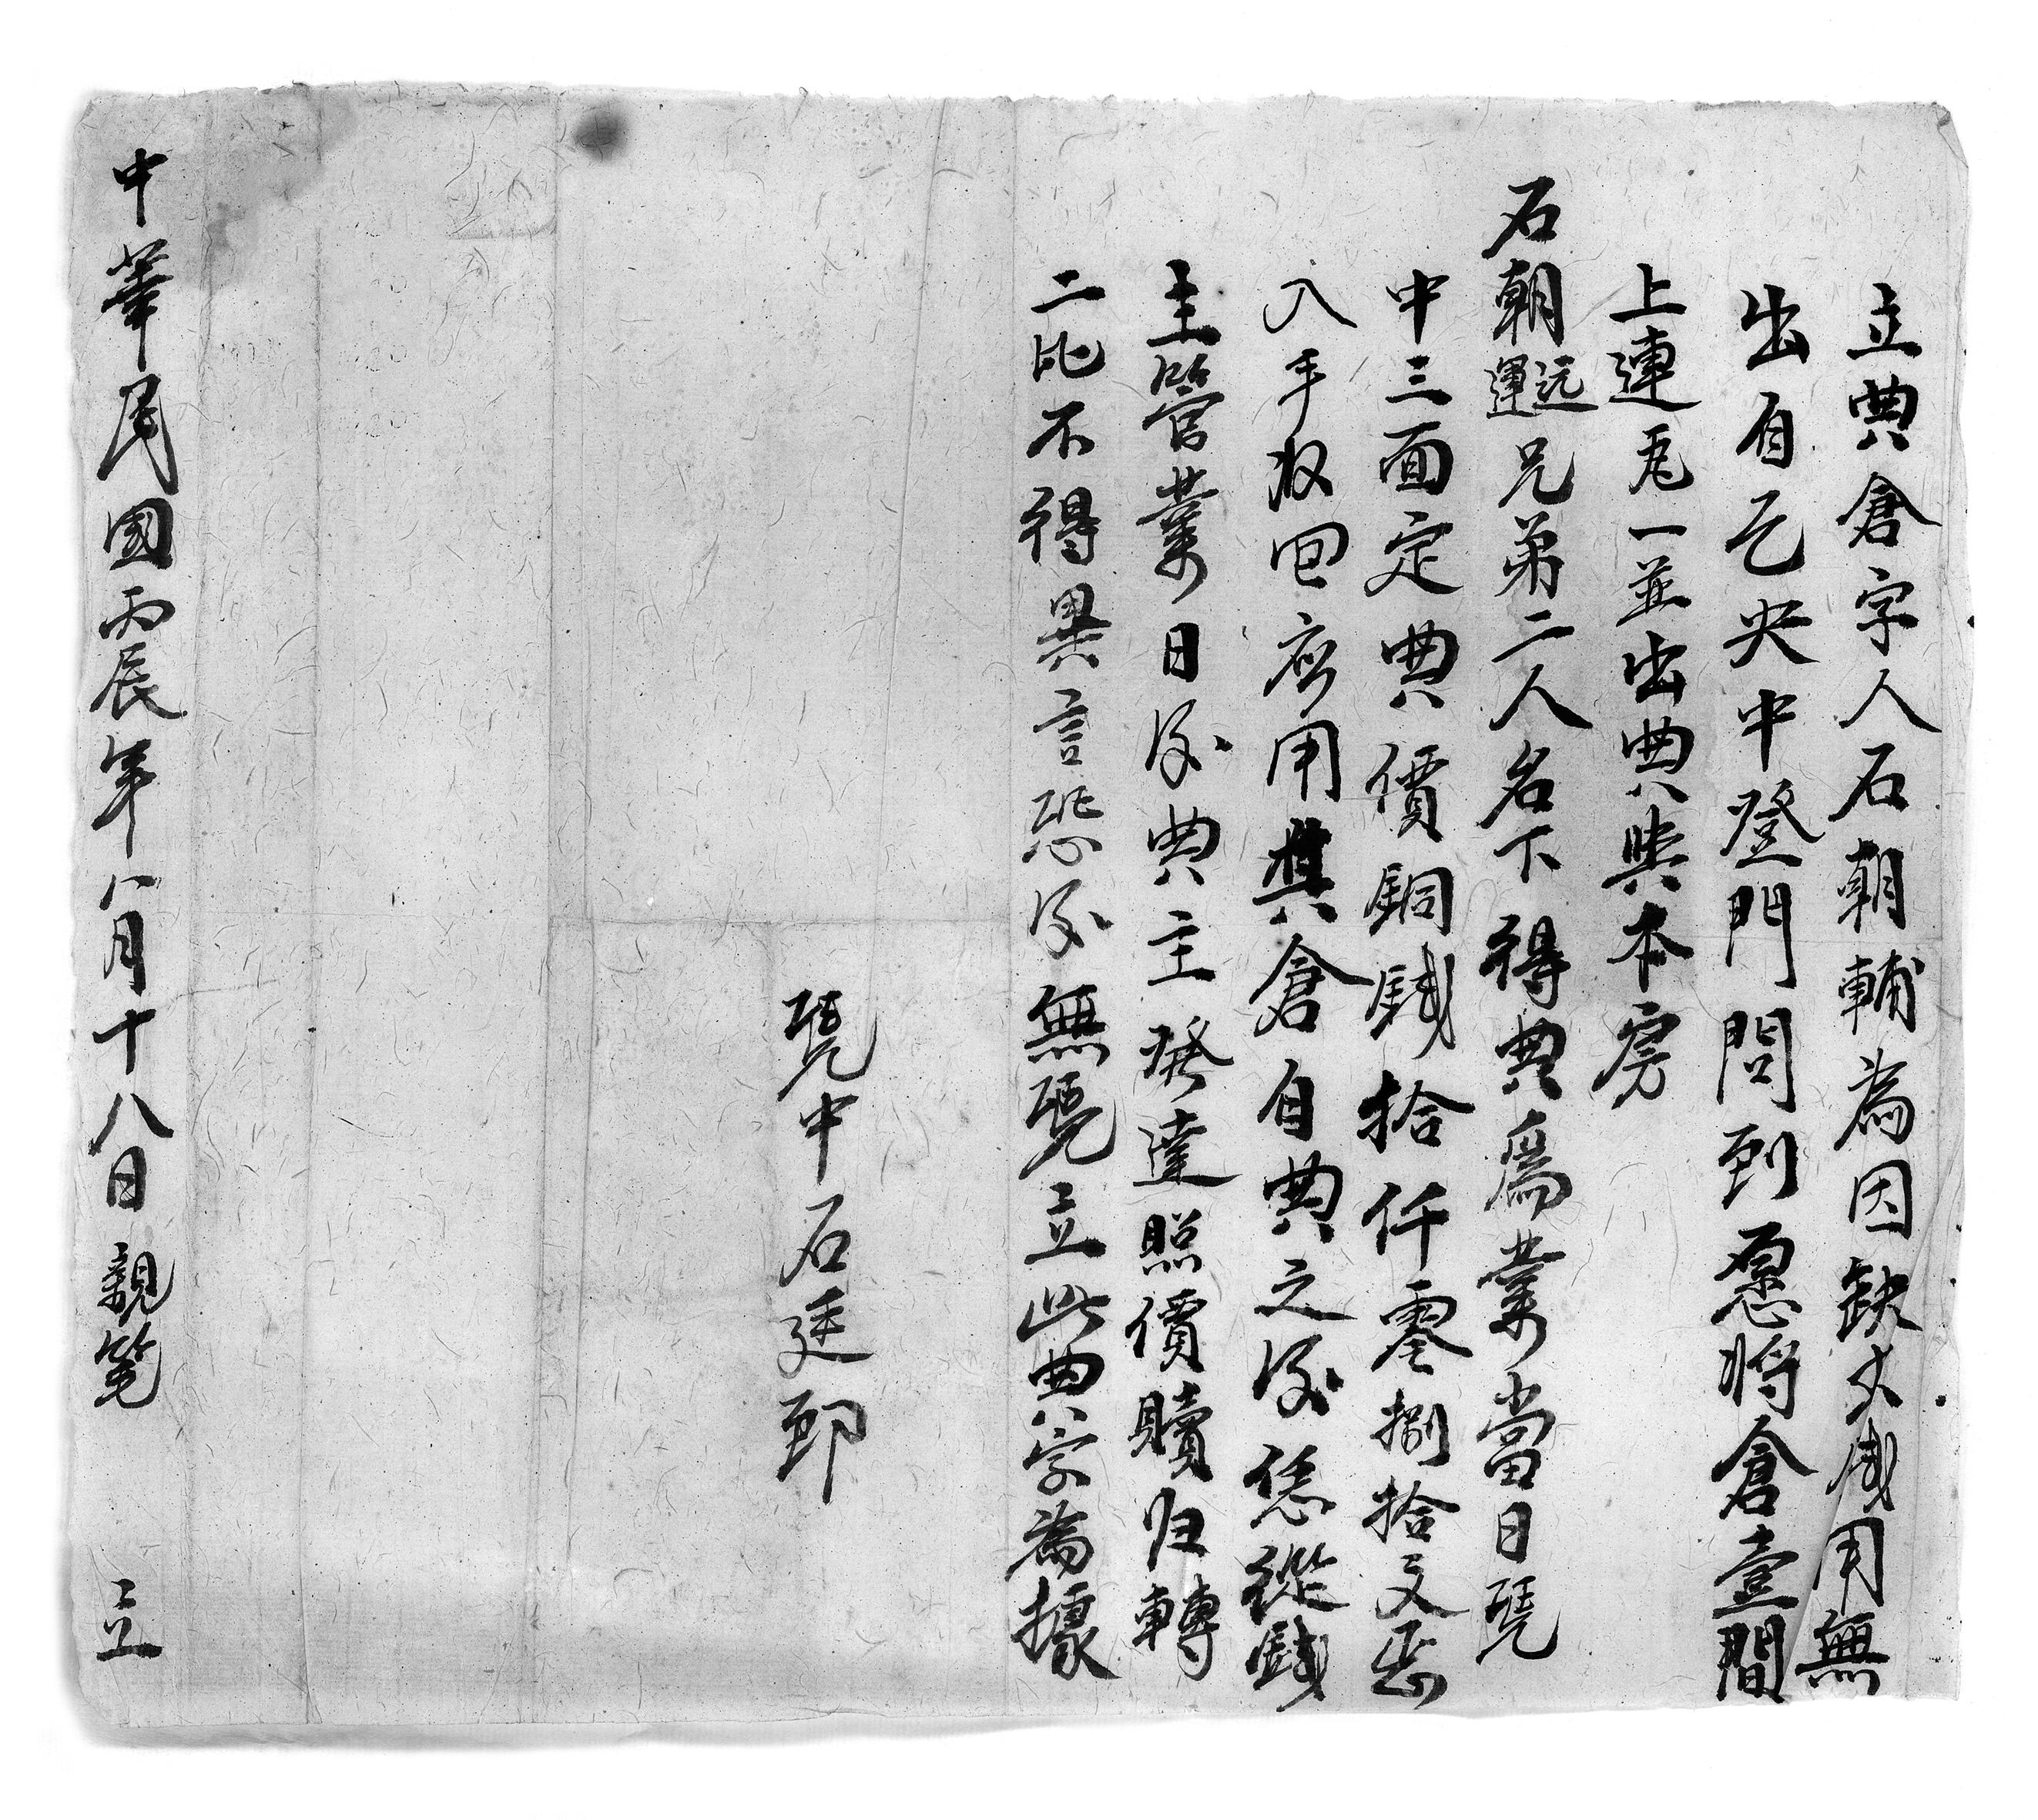 立典倉字人石朝輔為因缺少錢用無
出自己央中登門問到愿将倉壹間
上連瓦一並出典與本房
石朝運远兄弟二人名下得典爲業當日凴
中三面定典價銅錢拾仟零捌拾文正
入手收回應用其倉自典之後恁從錢
主管業日後典主發達照價贖归轉
二比不得異言恐後無凴立此典字為據
凴中石廷郎
中華民國丙辰年八月十八日親笔 立